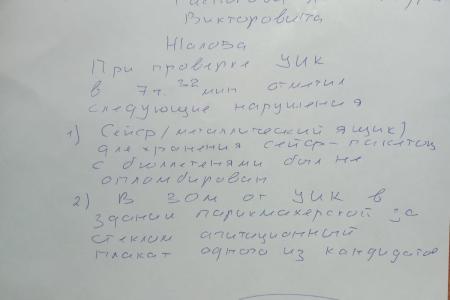 Викторовича
Жалоба
При проверке УИК
в 7ч. 22 мин отметил
следующие нарушения
1) Сейф/металлический ящик)
для хранения сейф-пакетов
с бюллетенями был не
опломбирован
2) В 30м от УИК в
здании парикмахерской за
стеклом агитационный
плакат одного из кандидатов